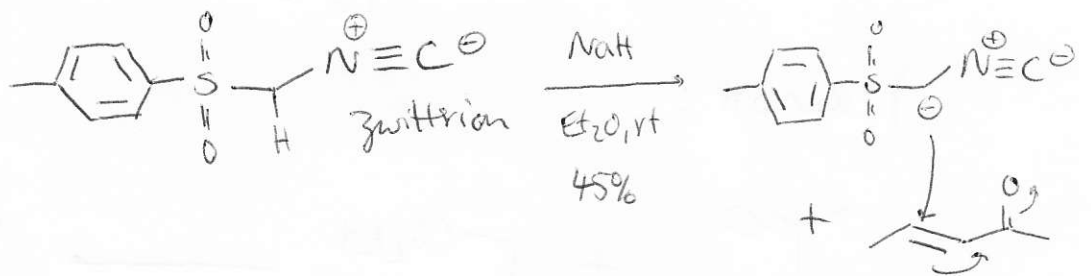 O
S
O
H
N⊕≡C⊖
zwitterion
NaH
Et₂O, rt
45%
O
S
O
⊖
N⊕≡C⊖
+
O